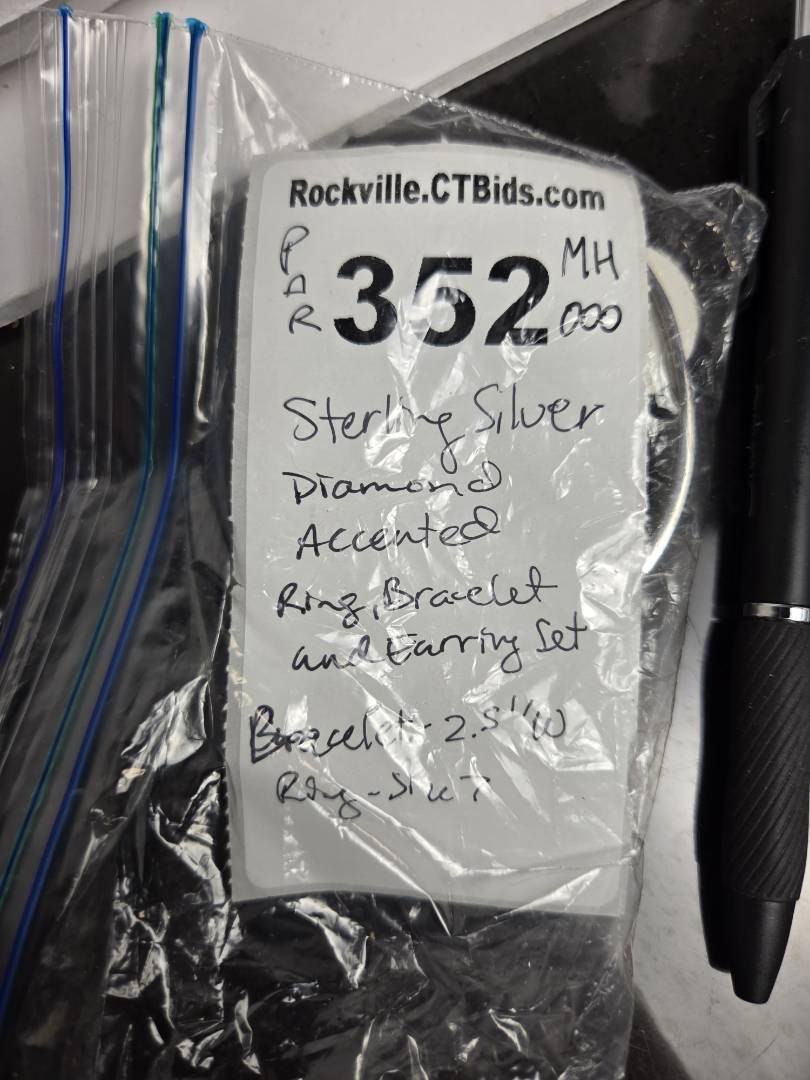 Rockville.CTBids.com
PAR 352 MH
000
Sterling Silver
Diamond
Accented
Ring, Bracelet
and Earring Set
Bracelet - 2.5" W
Ring - Size 7